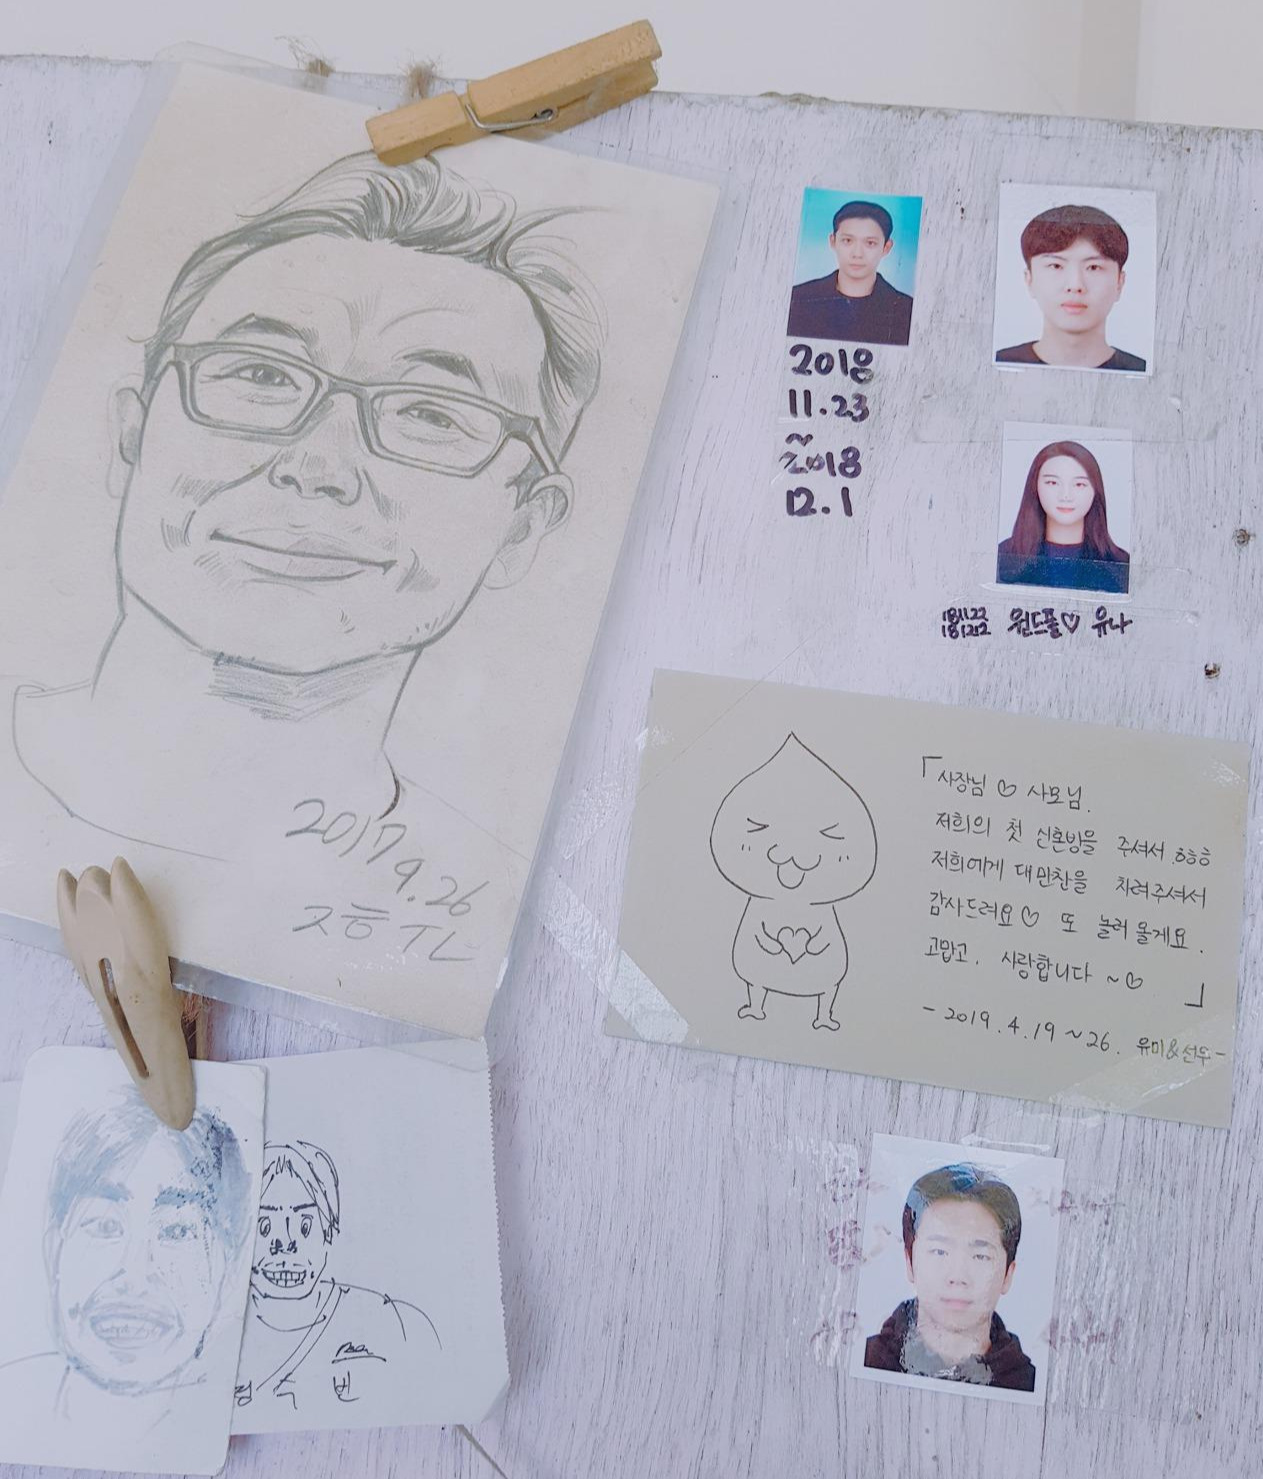 2017
9.26
2018
11.23
~
2018
12.1
181122
181212 윈드폴♡ 유나
「사장님 ♡ 사모님.
저희의 첫 신혼방을 주셔서 흐흐흐
저희에게 대만찬을 차려주셔서
감사드려요♡ 또 놀러 올게요.
고맙고, 사랑합니다 ~♡
」
- 2019.4.19 ~ 26. 유미&선우 -